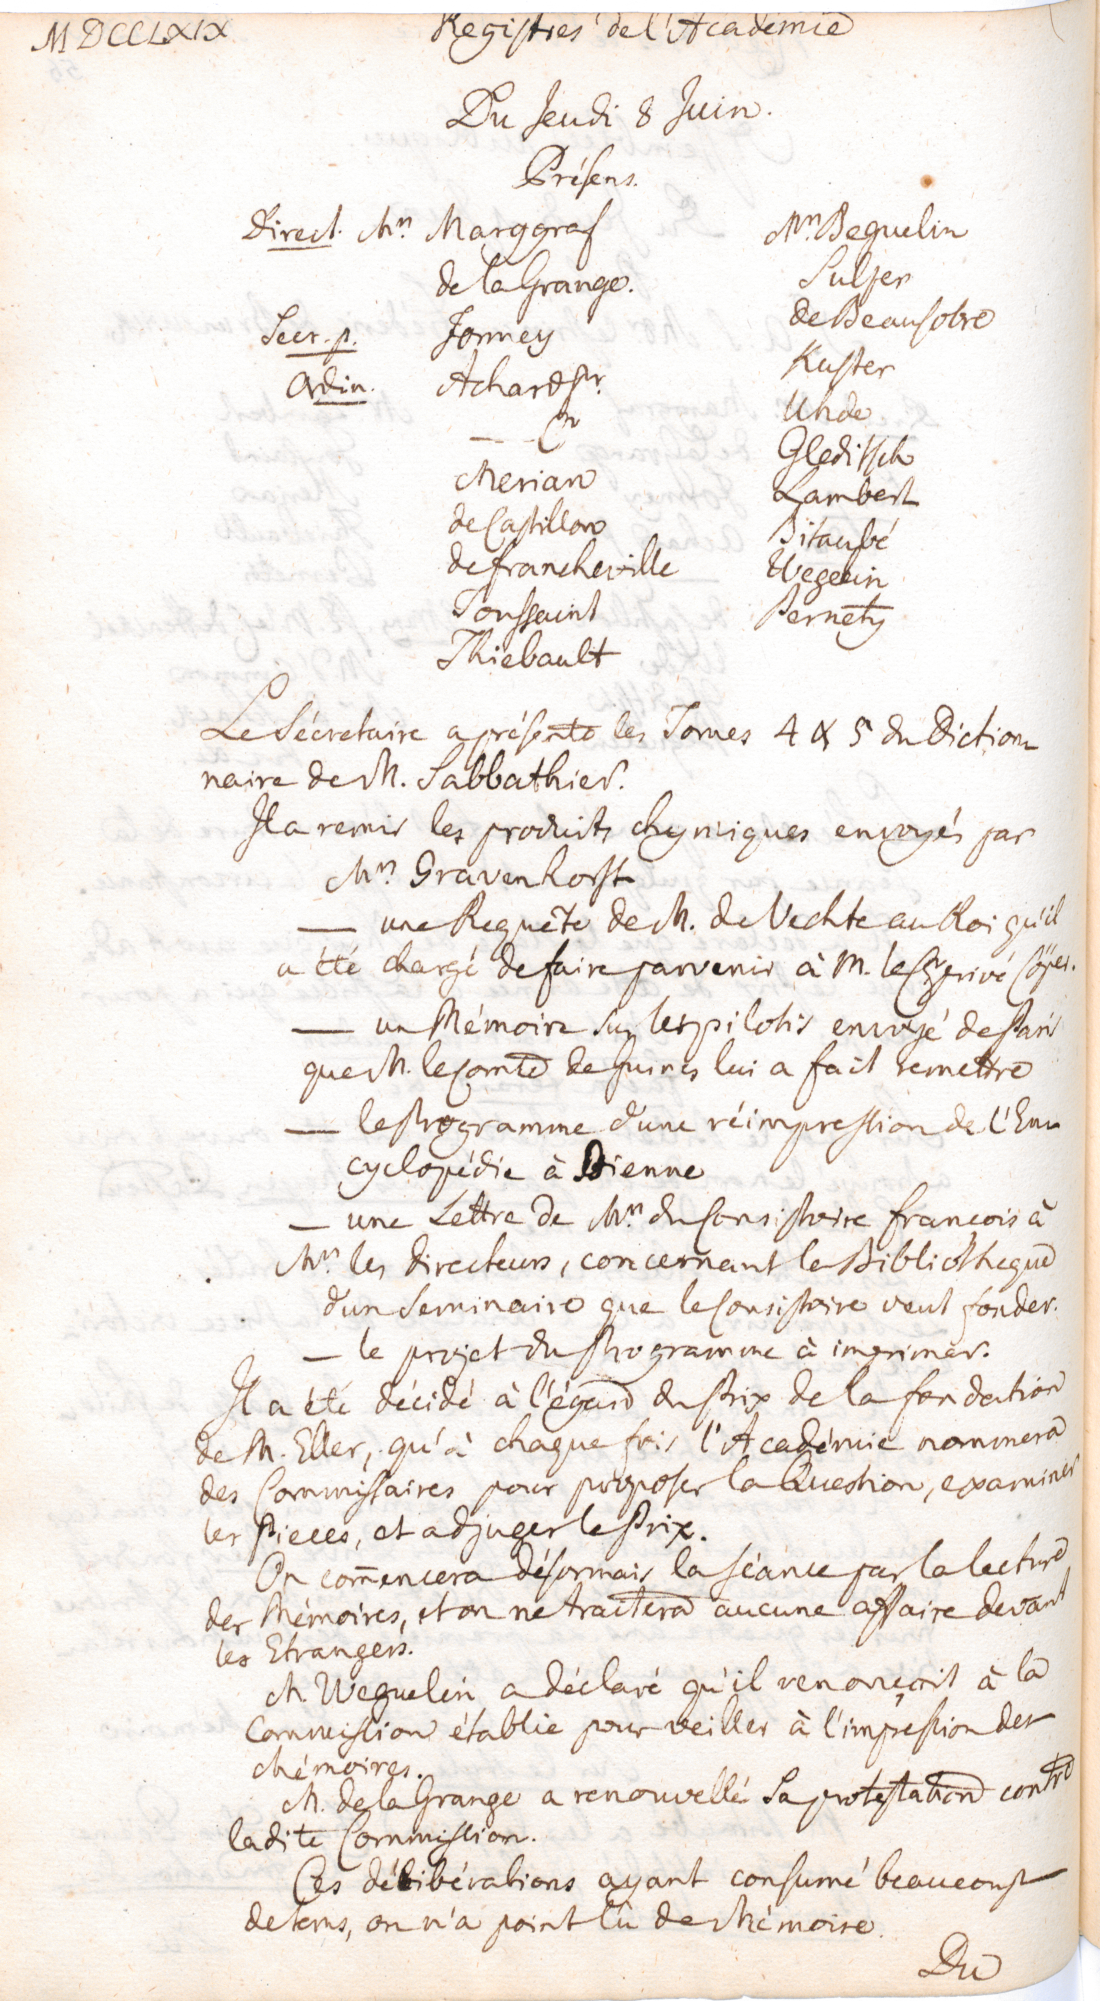 MDCCLXIX
Registres de l'Académie
Du Jeudi 8 Juin.
Présens.
Direct. Mrs Marggraf
de la Grange.
Secr. p. Formey
Ordin. Achard Sr.
Merian
de Castillon
de Francheville
Toussaint
Thiebault
Mrs Beguelin
Sulzer
de Beausobre
Kuster
Uhde
Gleditsch
Lambert
Bitaubé
Weguelin
Pernety
Le Sécretaire a présenté les Tomes 4 & 5 du Diction
naire de M. Sabbathier.
Il a remis les produits chymiques envoyés par
Mrs Gravenhorst
— une Requête de M. de Vechte au Roi qu'il
a été chargé de faire parvenir à M. le Cr privé Cöper.
— un Mémoire sur les pilotis envoyé de Paris
que M. le Comte de Guines lui a fait remettre
— le Programme d'une réimpression de l'En
cyclopédie à Bienne
— une Lettre de Mrs du Consistoire françois à
Mrs les Directeurs, concernant la Bibliothèque
d'un Seminaire que le Consistoire veut fonder.
— le projet du Programme à imprimer.
Il a été décidé à l'égard du Prix de la fondation
de M. Eller, qu'à chaque fois l'Académie nommera
des Commissaires pour proposer la Question, examiner
les Pieces, et adjuger le Prix.
On com̄encera désormais la séance par la lecture
des Mémoires, et on ne traitera aucune affaire devant
les Etrangers.
M. Weguelin a déclaré qu'il renonçoit à la
Commission établie pour veiller à l'impression des
Mémoires.
M. de la Grange a renouvellé sa protestation contre
ladite Commission.
Ces délibérations ayant consumé beaucoup
de tems, on n'a point lû de Mémoire.
Du